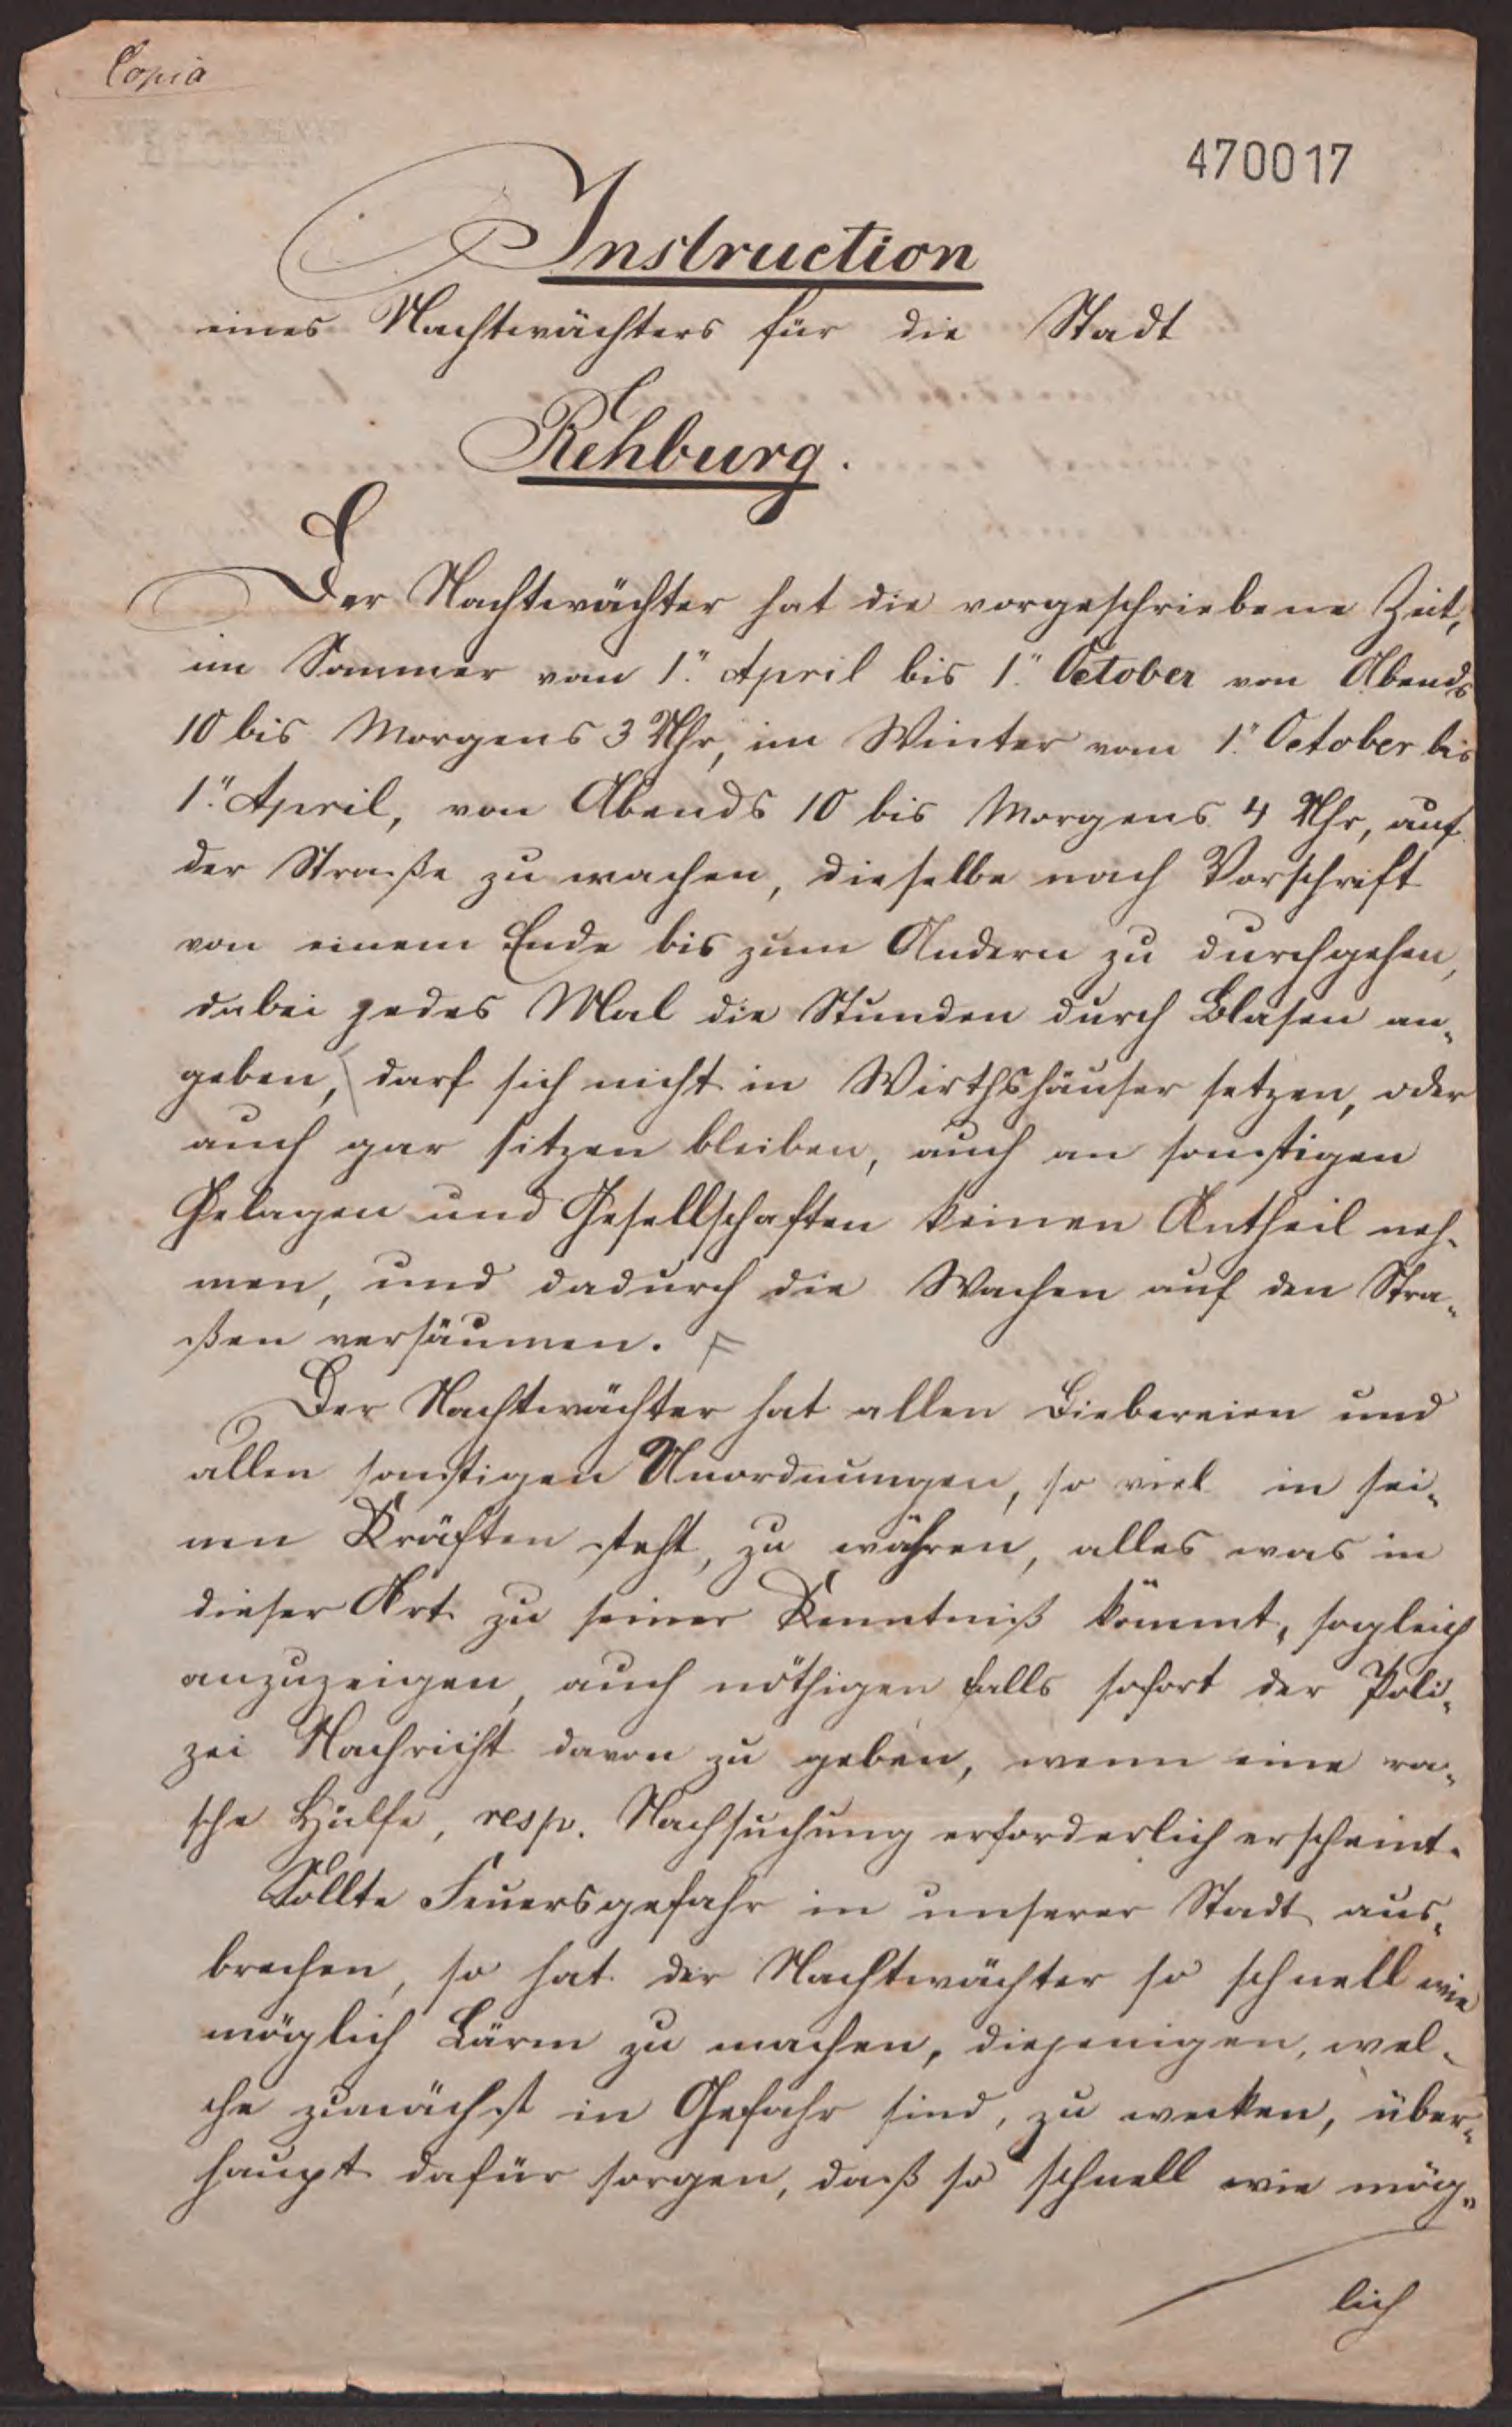 Copia
470017
Instruction
eines Nachtwächters für die Stadt
Rehburg.
Der Nachtwächter hat die vorgeschriebene Zeit,
im Sommer vom 1." April bis 1." October von Abends
10 bis Morgens 3 Uhr, im Winter vom 1." October bis
1." April, von Abends 10 bis Morgens 4 Uhr, auf
der Straße zu wachen, dieselbe nach Vorschrift
von einem Ende bis zum Andern zu durchgehen,
dabei jedes Mal die Stunden durch Blasen an-
geben, darf sich nicht in Wirthshäuser setzen, oder
auch gar sitzen bleiben, auch an sonstigen
Gelagen und Gesellschaften keinen Antheil neh-
men, und dadurch die Wachen auf den Stra-
ßen versäumen.
Der Nachtwächter hat allen Diebereien und
allen sonstigen Unordnungen, so viel in sei-
nen Kräften steht, zu währen, alles was in
dieser Art zu seiner Kenntniß kömmt, sogleich
anzuzeigen, auch nöthigen falls sofort der Poli-
zei Nachricht davon zu geben, wenn eine ra-
sche Hülfe, resp. Nachsuchung erforderlich erscheint.
Sollte Feuersgefahr in unserer Stadt aus-
brechen, so hat der Nachtwächter so schnell wie
möglich Lärm zu machen, diejenigen, wel-
che zunächst in Gefahr sind, zu wecken, über-
haupt dafür sorgen, daß so schnell wie mög-
lich